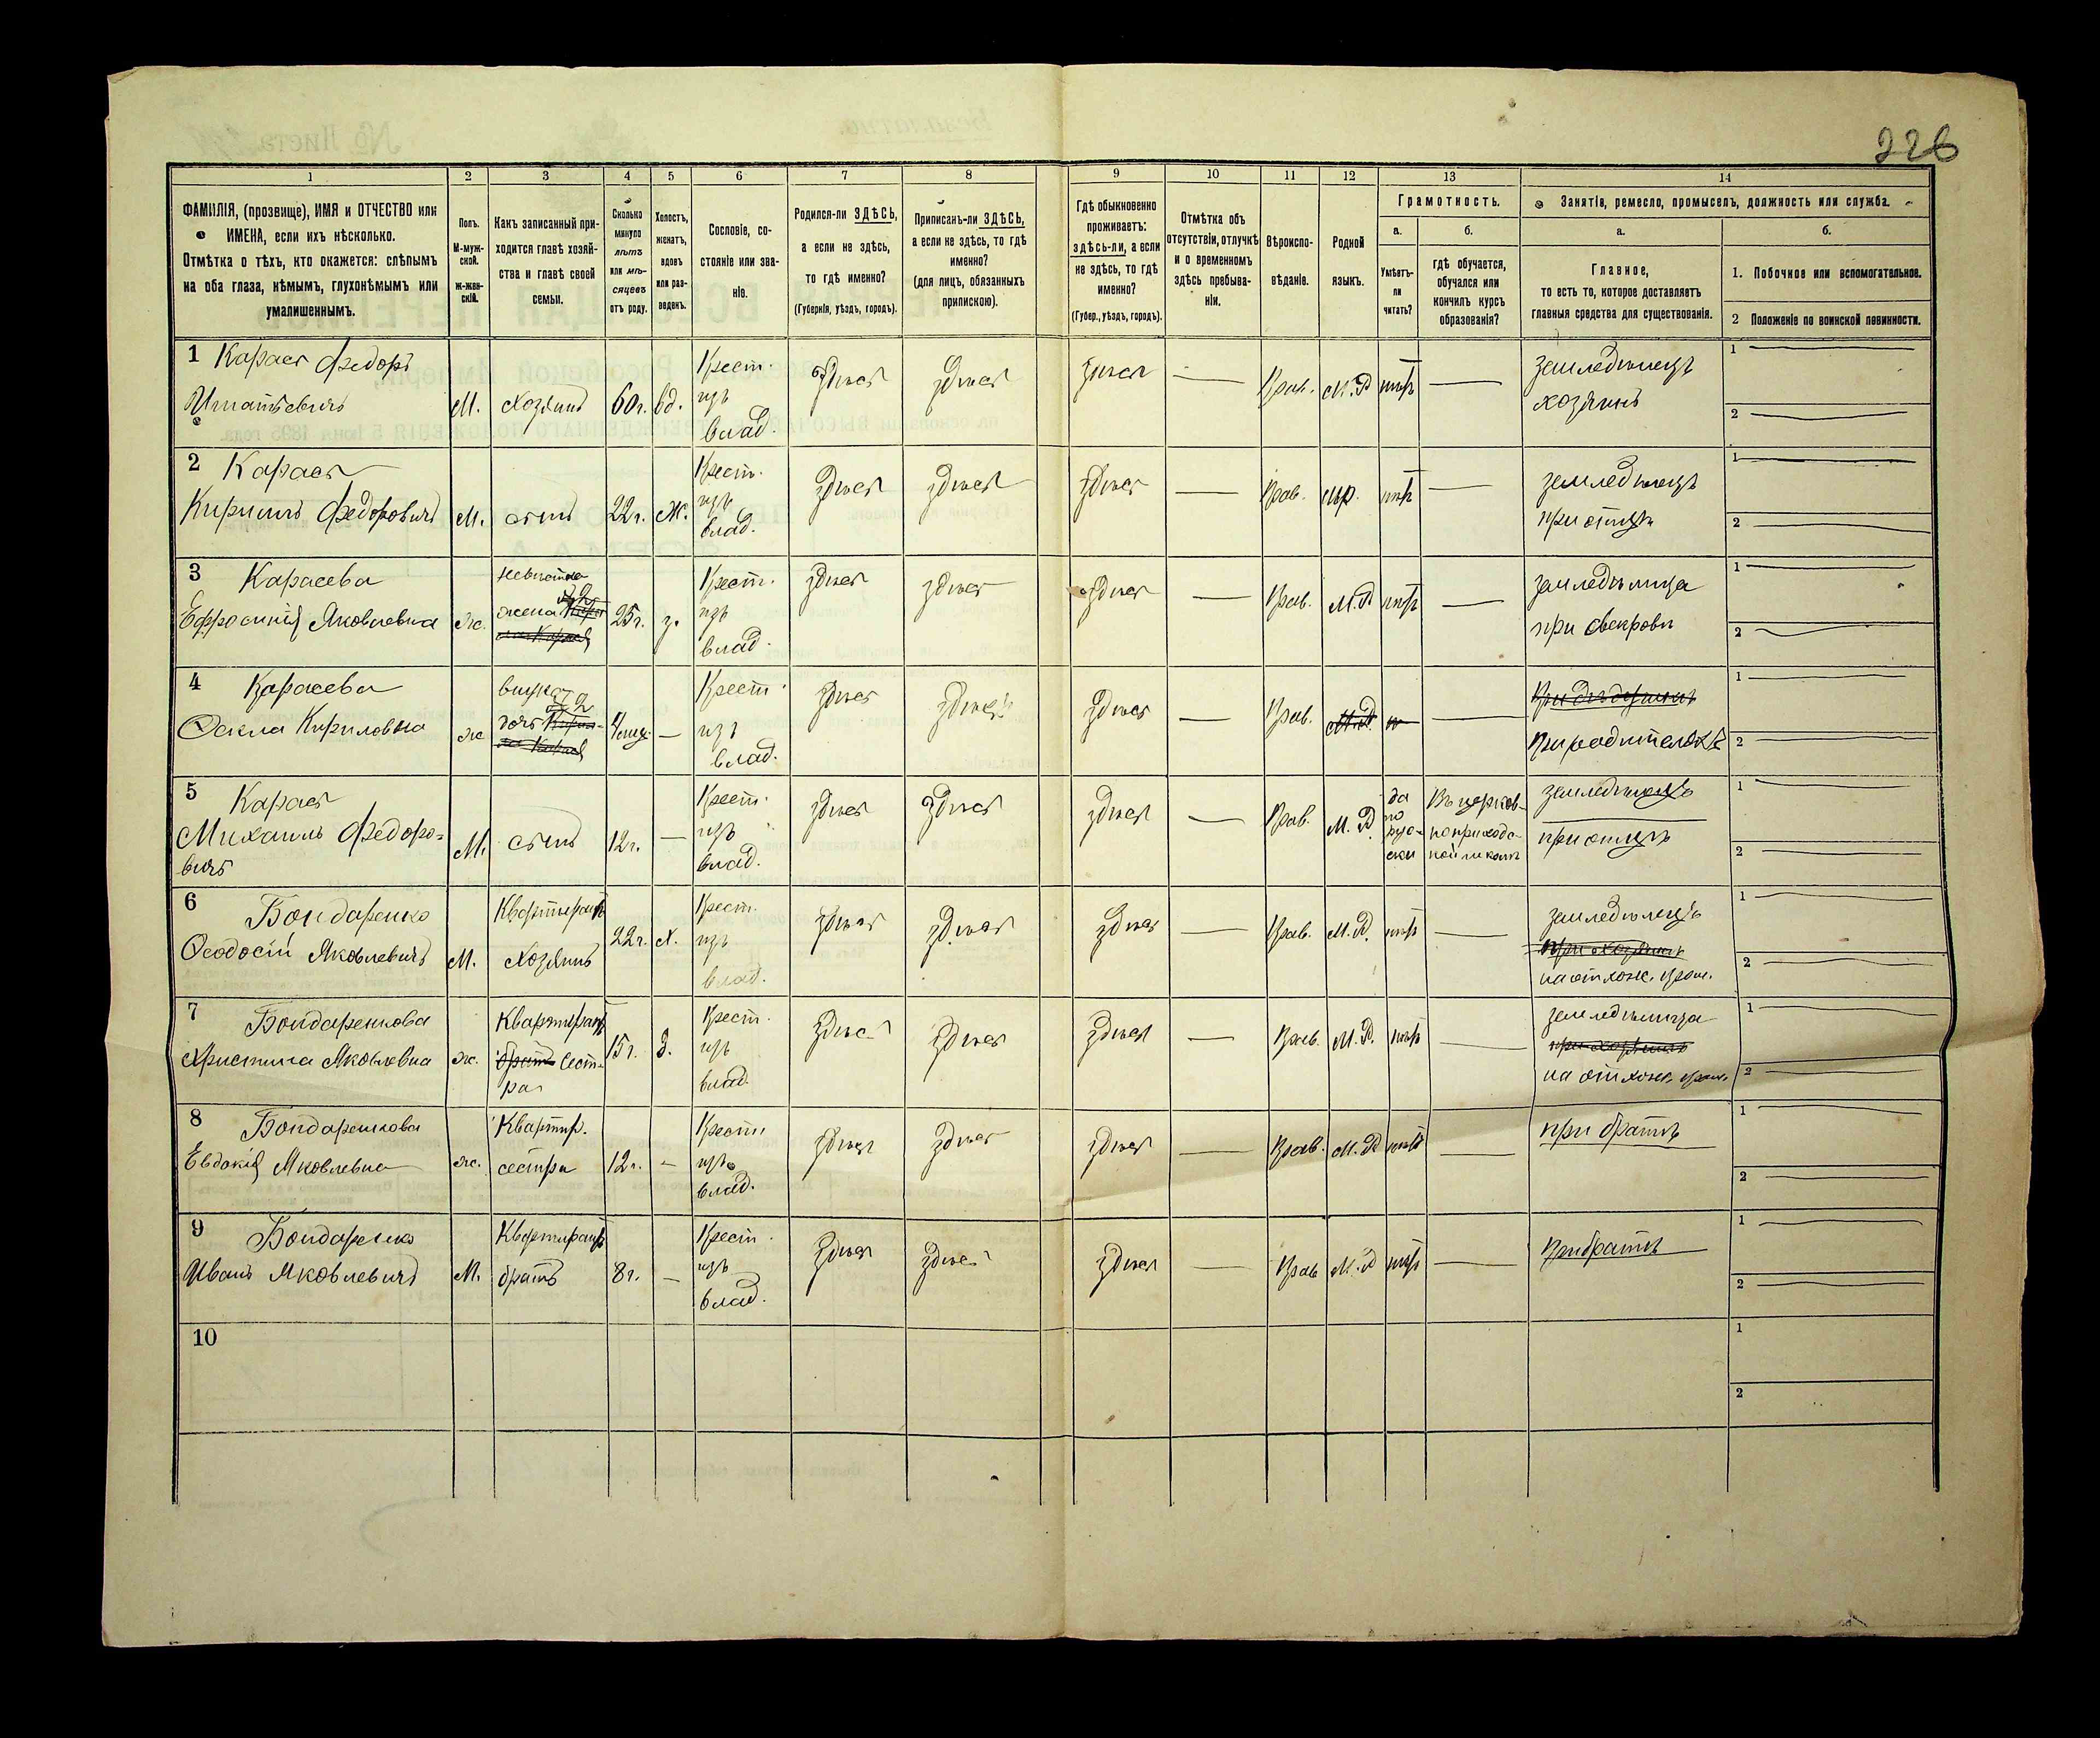 226
1 2 3 4 5 6 7 8 9 10 11 12 13 14
ФАМИЛІЯ, (прозвище), ИМЯ и ОТЧЕСТВО или
ИМЕНА, если ихъ нѣсколько.
Отмѣтка о тѣхъ, кто окажется: слѣпымъ
на оба глаза, нѣмымъ, глухонѣмымъ или
умалишеннымъ.
Полъ.
М-муж-
ской.
ж-жен-
скій.
Какъ записанный при-
ходится главѣ хозяй-
ства и главѣ своей
семьи.
Сколько
минуло
лѣтъ
или мѣ-
сяцевъ
отъ роду.
Холостъ,
женатъ,
вдовъ
или раз-
веденъ.
Сословіе, со-
стояніе или зва-
ніе.
Родился-ли ЗДѢСЬ,
а если не здѣсь,
то гдѣ именно?
(Губернія, уѣздъ, городъ).
Приписанъ-ли ЗДѢСЬ,
а если не здѣсь, то гдѣ
именно?
(для лицъ, обязанныхъ
припискою).
Гдѣ обыкновенно
проживаетъ:
здѣсь-ли, а если
не здѣсь, то гдѣ
именно?
(Губер., уѣздъ, городъ).
Отмѣтка объ
отсутствіи, отлучкѣ
и о временномъ
здѣсь пребыва-
ніи.
Вѣроиспо-
вѣданіе.
Родной
языкъ.
Грамотность.
а.
Умѣетъ-
ли
читать?
б.
гдѣ обучается,
обучался или
кончилъ курсъ
образованія?
Занятіе, ремесло, промыселъ, должность или служба.
а.
Главное,
то есть то, которое доставляетъ
главныя средства для существованія.
б.
1. Побочное или вспомогательное.
2 Положеніе по воинской повинности.
1 Карась Федоръ
Игнатьевичъ
М. хозяинъ 60г. вд.
Крест.
изъ
влад.
здѣсь здѣсь здѣсь — Прав. М.Р. нѣтъ —
земледѣлецъ
хозяинъ
1 —
2 —
2 Карась
Кириллъ Федоровичъ
М. сынъ 22г. Ж.
Крест.
изъ
влад.
здѣсь здѣсь здѣсь — Прав. нѣтъ —
земледѣлецъ
при отцѣ
1 —
2 —
3 Карасева
Ефросинія Яковлевна
ж.
невѣстка
жена
25г. з.
Крест.
изъ
влад.
здѣсь здѣсь здѣсь — Прав. М.Р. нѣтъ —
земледѣлица
при свекрови
1 —
2 —
4 Карасева
Ѳекла Кириловна
ж
внучка
дочь
4 мѣс. —
Крест.
изъ
влад.
здѣсь здѣсь здѣсь — Прав. М.Р. н —
при родителяхъ
1 —
2 —
5 Карась
Михаилъ Федоро-
вичъ
М. сынъ 12г. —
Крест.
изъ
влад.
здѣсь здѣсь здѣсь — Прав. М.Р.
да
по
рус-
ски
Въ церков-
ноприход-
ной школѣ
земледѣлецъ
при отцѣ
1 —
2 —
6 Бондаренко
Ѳеодосій Яковлевичъ
М.
Квартирантъ
Хозяинъ
22г. х.
Крест.
изъ
влад.
здѣсь здѣсь здѣсь — Прав. М.Р. нѣтъ —
земледѣлецъ
при хозяинѣ
на отхож. пром.
1 —
2 —
7 Бондаренкова
Христина Яковлевна
ж.
Квартирант
братъ Сест-
ра
15г. д.
Крест.
изъ
влад.
здѣсь здѣсь здѣсь — Прав. М.Р. нѣтъ —
земледѣлица
при хозяинѣ
на отхож. пром.
1 —
2 —
8 Бондаренкова
Евдокія Яковлевна
ж.
Квартир.
сестра
12г. —
Крест.
изъ
влад.
здѣсь здѣсь здѣсь — Прав. М.Р. нѣтъ —
при братѣ
1 —
2 —
9 Бондаренко
Иванъ Яковлевичъ
М.
Квартирантъ
братъ
8г. —
Крест.
изъ
влад.
здѣсь здѣсь здѣсь — Прав М.Р нѣтъ —
При братѣ
1 —
2 —
10
1
2